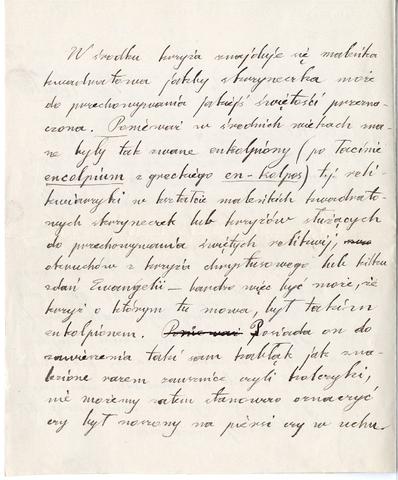 W środku krzyża znajduje się maleńka
kwadratowa jakby skrzyneczka może
do przechowywania jakiejś świętości przezna-
czona. Ponieważ w średnich wiekach zna-
ne były tak zwane enkolpiony (po łacinie
encolpium z greckiego en-kolpos) tj. reli-
kwiarzyki w kształcie maleńkich kwadrato-
wych skrzyneczek lub krzyżów służących
do przechowywania świętych relikwij,
okruchów z krzyża chrystusowego lub kilku
zdań Ewangelii – bardzo więc być może, iż
krzyż o którym tu mowa, był takim
enkolpionem. Ponieważ Posiada on do
zawieszenia taki sam kabłąk jak zna-
lezione razem zausznice czyli kolczyki,
nie możemy zatem stanowczo oznaczyć
czy był noszony na piersi czy w uchu.